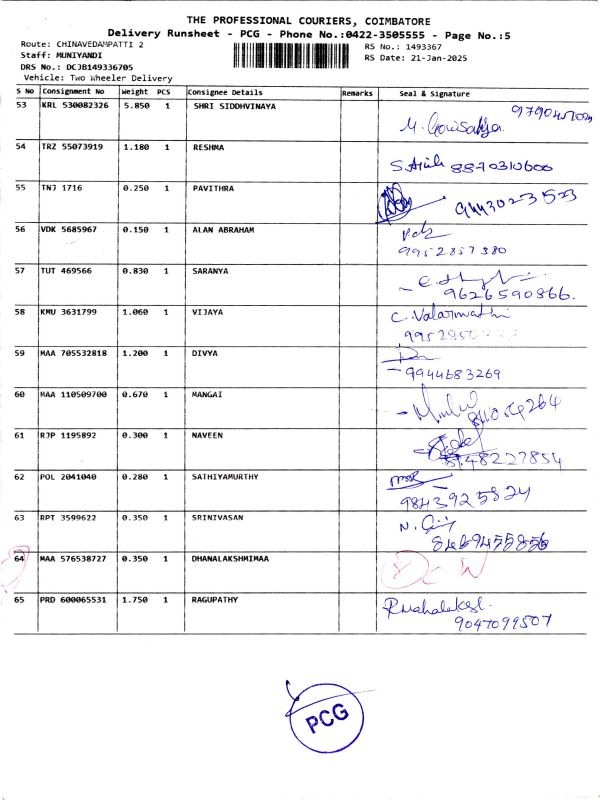 THE PROFESSIONAL COURIERS, COIMBATORE
Delivery Runsheet - PCG - Phone No.:0422-3505555 - Page No.:5
Route: CHINAVEDAMPATTI 2 RS No.: 1493367
Staff: MUNIYANDI RS Date: 21-Jan-2025
DRS No.: DCJB149336705
Vehicle: Two Wheeler Delivery
S No Consignment No Weight PCS Consignee Details Remarks Seal & Signature
53 KRL 530082326 5.850 1 SHRI SIDDHVINAYA
54 TRZ 55073919 1.180 1 RESHMA 8870310600
55 TNJ 1716 0.250 1 PAVITHRA 9443023523
56 VDK 5685967 0.150 1 ALAN ABRAHAM
9952857380
57 TUT 469566 0.830 1 SARANYA
9626590866.
58 KMU 3631799 1.060 1 VIJAYA C. Valarmathi
59 MAA 705532818 1.200 1 DIVYA
9944683269
60 MAA 110509700 0.670 1 MANGAI
61 RJP 1195892 0.300 1 NAVEEN
8148227854
62 POL 2041040 0.280 1 SATHIYAMURTHY
9843925824
63 RPT 3599622 0.350 1 SRINIVASAN
64 MAA 576538727 0.350 1 DHANALAKSHMIMAA
65 PRD 600065531 1.750 1 RAGUPATHY
9047099507
PCG